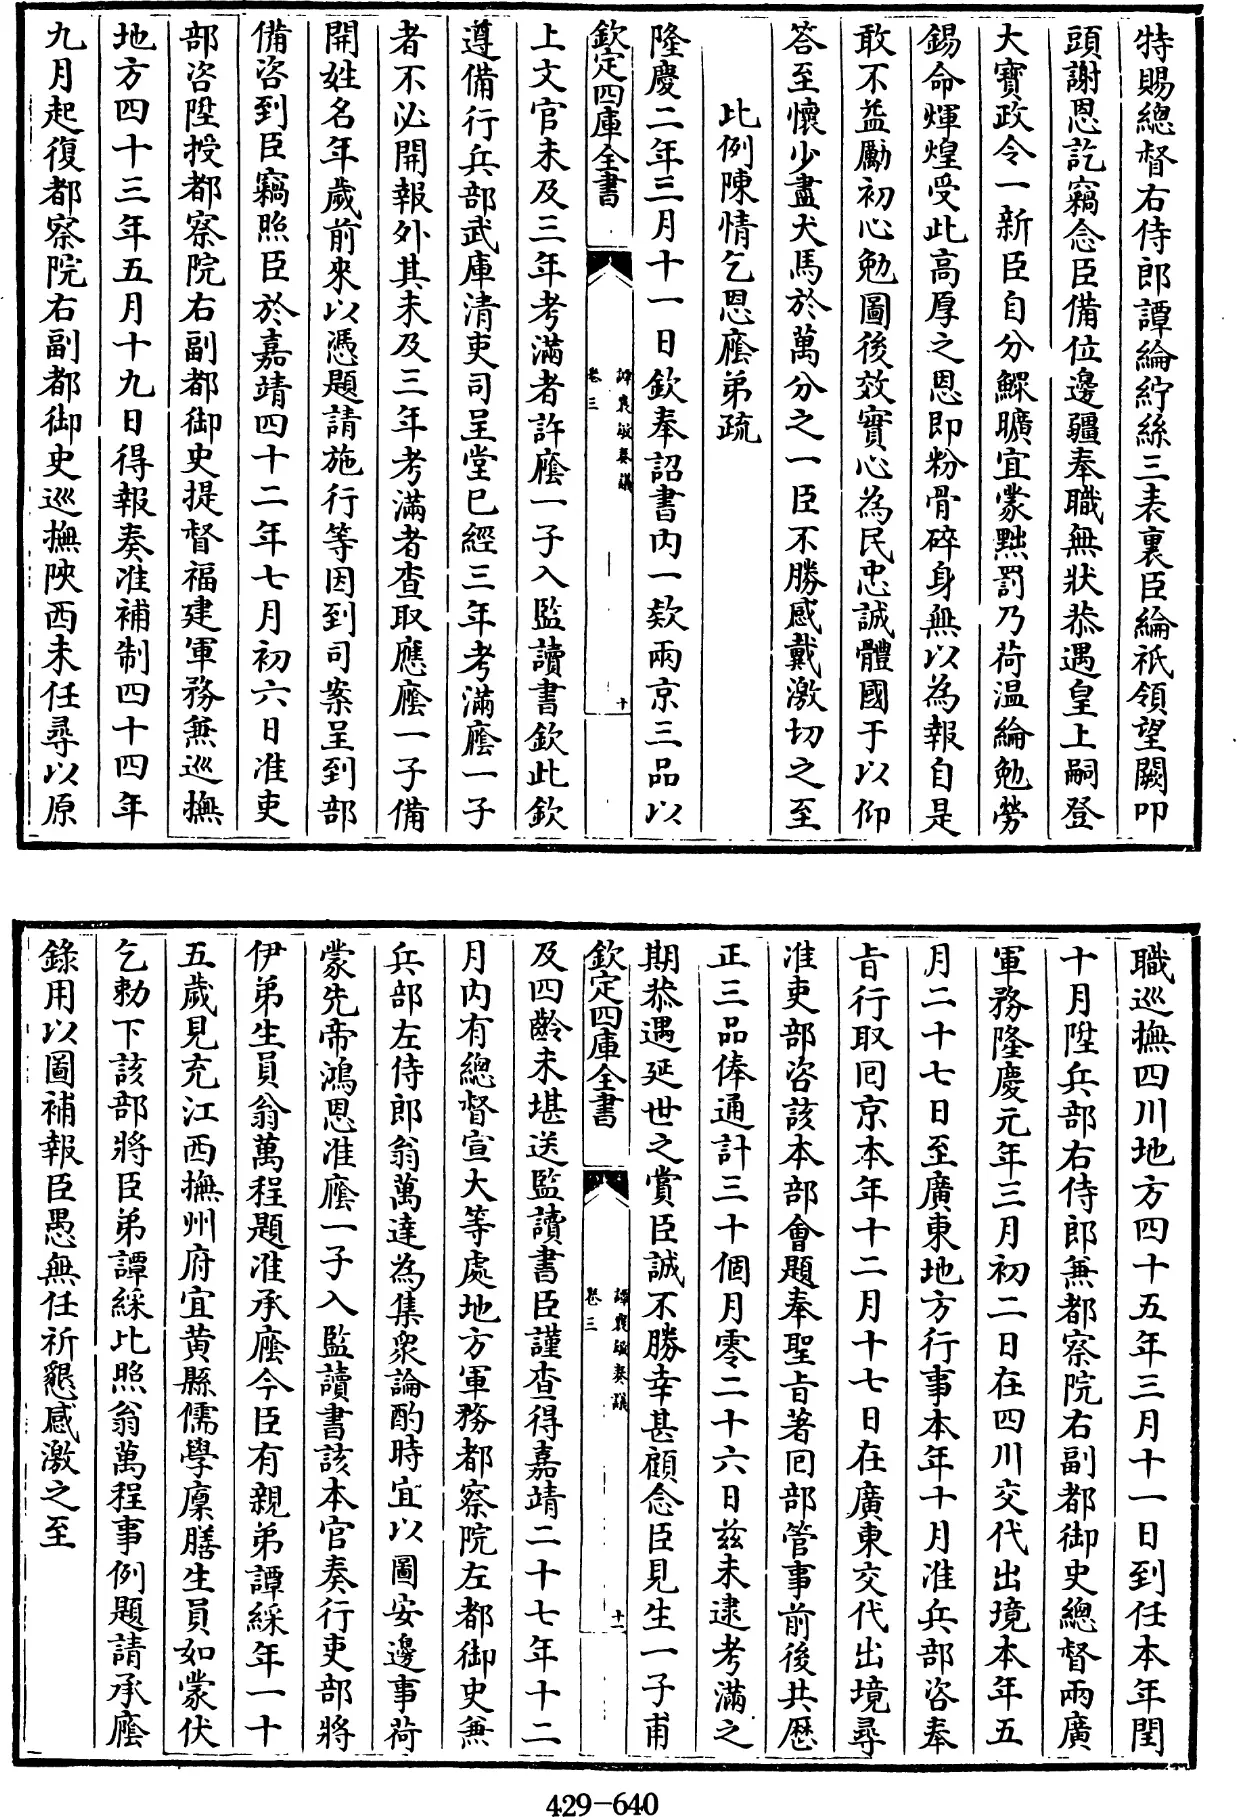 特賜總督右侍郎譚綸紵絲三表裏臣綸祇領望闕叩
頭謝恩訖竊念臣備位邊疆奉職無狀恭遇皇上嗣登
大寶政令一新臣自分鰥曠宜蒙黜罰乃荷温綸勉勞
錫命煇煌受此高厚之恩即粉骨碎身無以為報自是
敢不益勵初心勉圖後效實心為民忠誠體國于以仰
答至懷少盡犬馬於萬分之一臣不勝感戴激切之至
此例陳情乞恩廕弟疏
隆慶二年三月十一日欽奉詔書内一欵兩京三品以
欽定四庫全書
譚襄敏奏議
卷三
十
上文官未及三年考滿者許廕一子入監讀書欽此欽
遵備行兵部武庫清吏司呈堂已經三年考滿廕一子
者不必開報外其未及三年考滿者查取應廕一子備
開姓名年歲前來以憑題請施行等因到司案呈到部
備咨到臣竊照臣於嘉靖四十二年七月初六日准吏
部咨陞授都察院右副都御史提督福建軍務兼巡撫
地方四十三年五月十九日得報奏准補制四十四年
九月起復都察院右副都御史巡撫陜西未任尋以原
職巡撫四川地方四十五年三月十一日到任本年閏
十月陞兵部右侍郎兼都察院右副都御史總督兩廣
軍務隆慶元年三月初二日在四川交代出境本年五
月二十七日至廣東地方行事本年十月准兵部咨奉
旨行取回京本年十二月十七日在廣東交代出境尋
准吏部咨該本部會題奉聖旨著回部管事前後共歴
正三品俸通計三十個月零二十六日兹未逮考滿之
期恭遇延世之賞臣誠不勝幸甚顧念臣見生一子甫
欽定四庫全書
譚襄敏奏議
卷三
十一
及四齡未堪送監讀書臣謹查得嘉靖二十七年十二
月内有總督宣大等處地方軍務都察院左都御史兼
兵部左侍郎翁萬達為集衆論酌時宜以圖安邊事荷
蒙先帝鴻恩准廕一子入監讀書該本官奏行吏部將
伊弟生員翁萬程題准承廕今臣有親弟譚綵年一十
五歲見充江西撫州府宜黄縣儒學廩膳生員如蒙伏
乞勅下該部將臣弟譚綵比照翁萬程事例題請承廕
錄用以圖補報臣愚無任祈懇感激之至
429-640